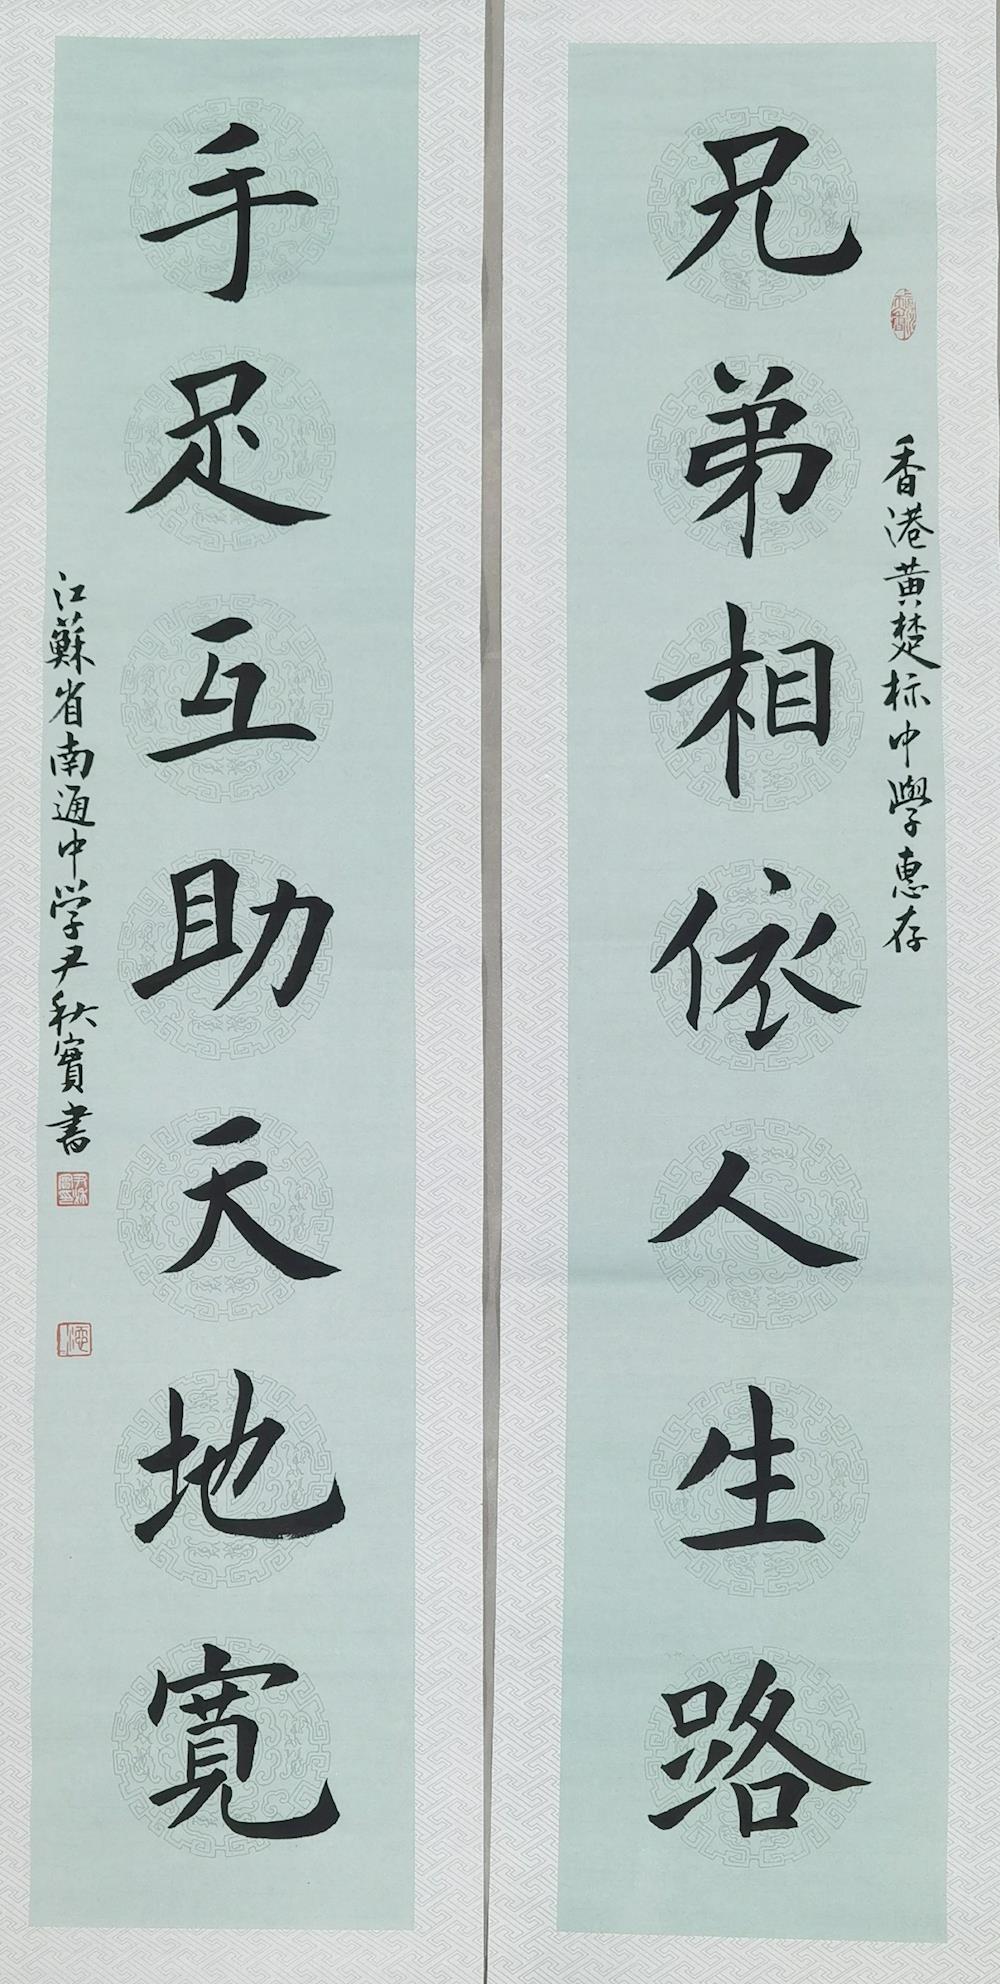 兄弟相依人生路
香港黄楚标中學惠存
手足互助天地寬
江蘇省南通中学尹秋實書